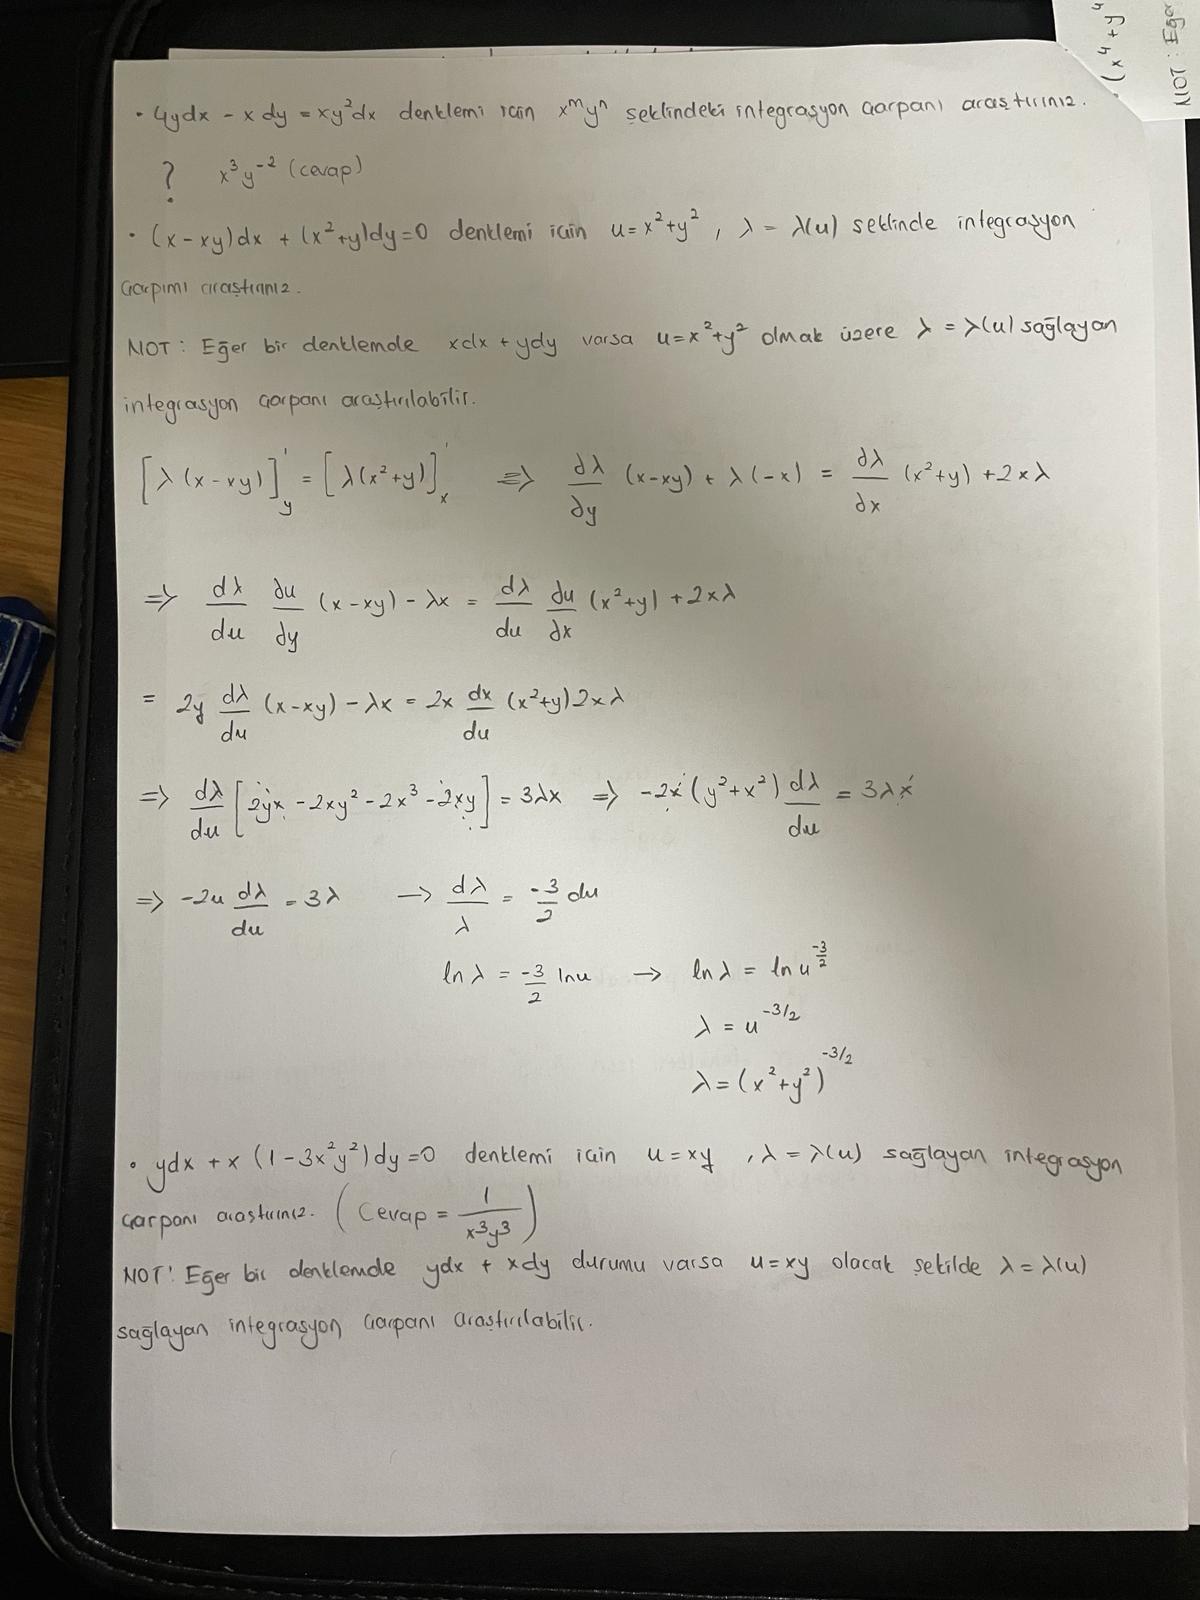 • 4ydx - x dy = xy²dx denklemi için xᵐyⁿ şeklindeki integrasyon çarpanı araştırınız.
? x³y⁻² (cevap)
• (x-xy)dx + (x²+y)dy=0 denklemi için u=x²+y² , λ = λ(u) şeklinde integrasyon
çarpımı araştırınız.
NOT : Eğer bir denklemde xdx + ydy varsa u=x²+y² olmak üzere λ = λ(u) sağlayan
integrasyon çarpanı araştırılabilir.
[λ(x-xy)]'y = [λ(x²+y)]'x ⇒ ∂λ/∂y (x-xy) + λ(-x) = ∂λ/∂x (x²+y) + 2xλ
⇒ dλ/du ∂u/∂y (x-xy) - λx = dλ/du ∂u/∂x (x²+y) + 2xλ
= 2y dλ/du (x-xy) - λx = 2x dx/du (x²+y)2xλ
⇒ dλ/du [2yx - 2xy² - 2x³ - 2xy] = 3λx ⇒ -2x(y²+x²) dλ/du = 3λx
⇒ -2u dλ/du = 3λ → dλ/λ = -3/2 du
lnλ = -3/2 lnu → lnλ = ln u^(-3/2)
λ = u^(-3/2)
λ = (x²+y²)^(-3/2)
• ydx + x (1-3x²y²)dy=0 denklemi için u=xy , λ = λ(u) sağlayan integrasyon
çarpanı araştırınız. (Cevap = 1/x³y³)
NOT: Eğer bir denklemde ydx + xdy durumu varsa u=xy olacak şekilde λ=λ(u)
sağlayan integrasyon çarpanı araştırılabilir.
(x⁴+y⁴
NOT : Eğer